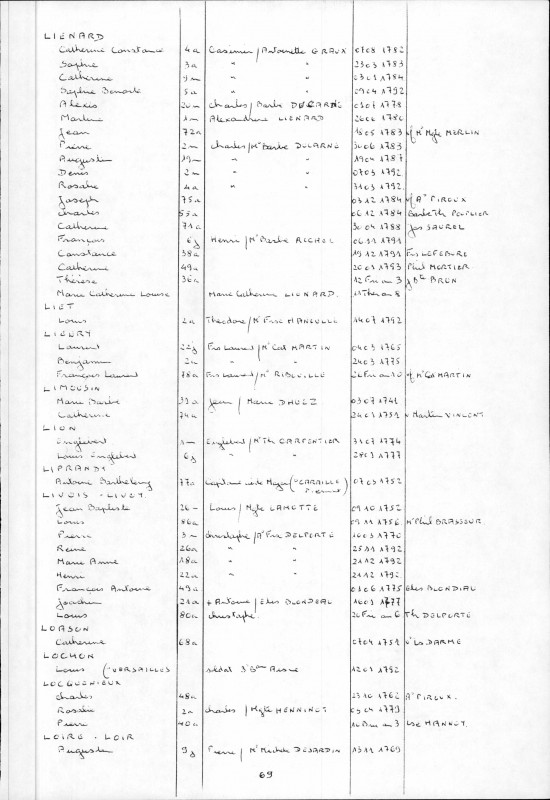 LIENARD
Catherine Constance 4a Casimir / Antoinette GRAUX 0708 1782
Sophie 3a " " 2503 1783
Catherine 9m " " 0301 1784
Sophie Benoite 5a " " 0904 1792
Alexis 20m Charles / Barbe DUCARNE 0107 1778
Martine 1m Alexandrine LIENARD 2606 1780
Jean 72a 1805 1783 vf Me Mgte MERLIN
Pierre 2m Charles / Me Barbe DUCARNE 3006 1783
Augustin 19m " " 1904 1787
Denis 2m " " 0703 1792
Rosalie 4a " " 3103 1792
Joseph 75a 0312 1784 vf A PIROUX
Charles 55a 0612 1784
Catherine 71a 3004 1788 Jos SAUREL
François 6j Henri / Me Barbe RICHEL 0611 1791
Constance 38a 1912 1791 Frs LEFEBURE
Catherine 49a 2001 1793 Phil MORTIER
Thérèse 36a 12 Fri an 3 J Bte BRUN
Marie Catherine Louise Marie Catherine LIENARD. 11 Ther an 8
LIET
Louis 2a Theodore / Me Frse HANCULLE 1407 1792
LIEURY
Laurent 22j Frs Laurent / Me Cat MARTIN 0403 1765
Benjamin 2a " 2403 1775
François Laurent 78a Frs Laurent / Me RIBEUILLE vf Me Ca MARTIN
LIMOUSIN
Marie Barbe 39a Jean / Marie DHUEZ 0307 1741
Catherine 74a 2401 1751 v Martin VINCENT
LION
Englebert 1m Englebert / Me Th CARPENTIER 3107 1774
Louis Englebert 6j " 2803 1777
LIPRANDI
Antoine Barthelemy 77a 0703 1752
LIVOIS - LIVET.
Jean Baptiste 26m Louis / Mgte LAMOTTE 0910 1752
Louis 86a 0911 1756 Me Phil BRASSEUR.
Pierre 3m Christophe / Me Frse DELPORTE 1003 1770
Reine 26a " " 2511 1792
Marie Anne 18a " " 2112 1792
Henri 22a " " 2112 1792.
François Antoine 49a 0306 1775 Elis BLONDIAU
Joachim 21a + Antoine / Elis BLONDEAU 1603 1777
Louis 80a Christophe. 26 Fri an 6 Th DELPORTE
LOASON
Catherine 68a 0704 1751 v Ls DARME
LOCHON
Louis (°VERSAILLES soldat 3°Bon Aisne 1201 1792
LOCQUENIEUX
Charles 48a 2310 1762 A PIROUX.
Rosalie 2a Charles / Mgte HENNINOT 0304 1779
Pierre 40a 16 Bru an 3 Lse HANNOT.
LOIRE - LOIR
Augustin 9j Pierre / Me Michele DESJARDIN 1311 1769
69